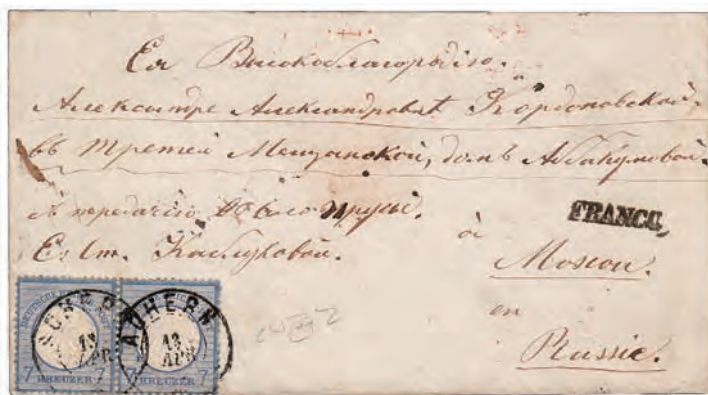 Ея Высокоблагородiю.
Александре Александровне Кордоновской,
въ третей Мещанской, домъ Абакумовой.
передачею
Ел. Каблуковой.
FRANCO,
à
Moscou.
en
Russie.
ACHERN
18
APR
ACHERN
18
APR
7 KREUZER 7
7 KREUZER 7